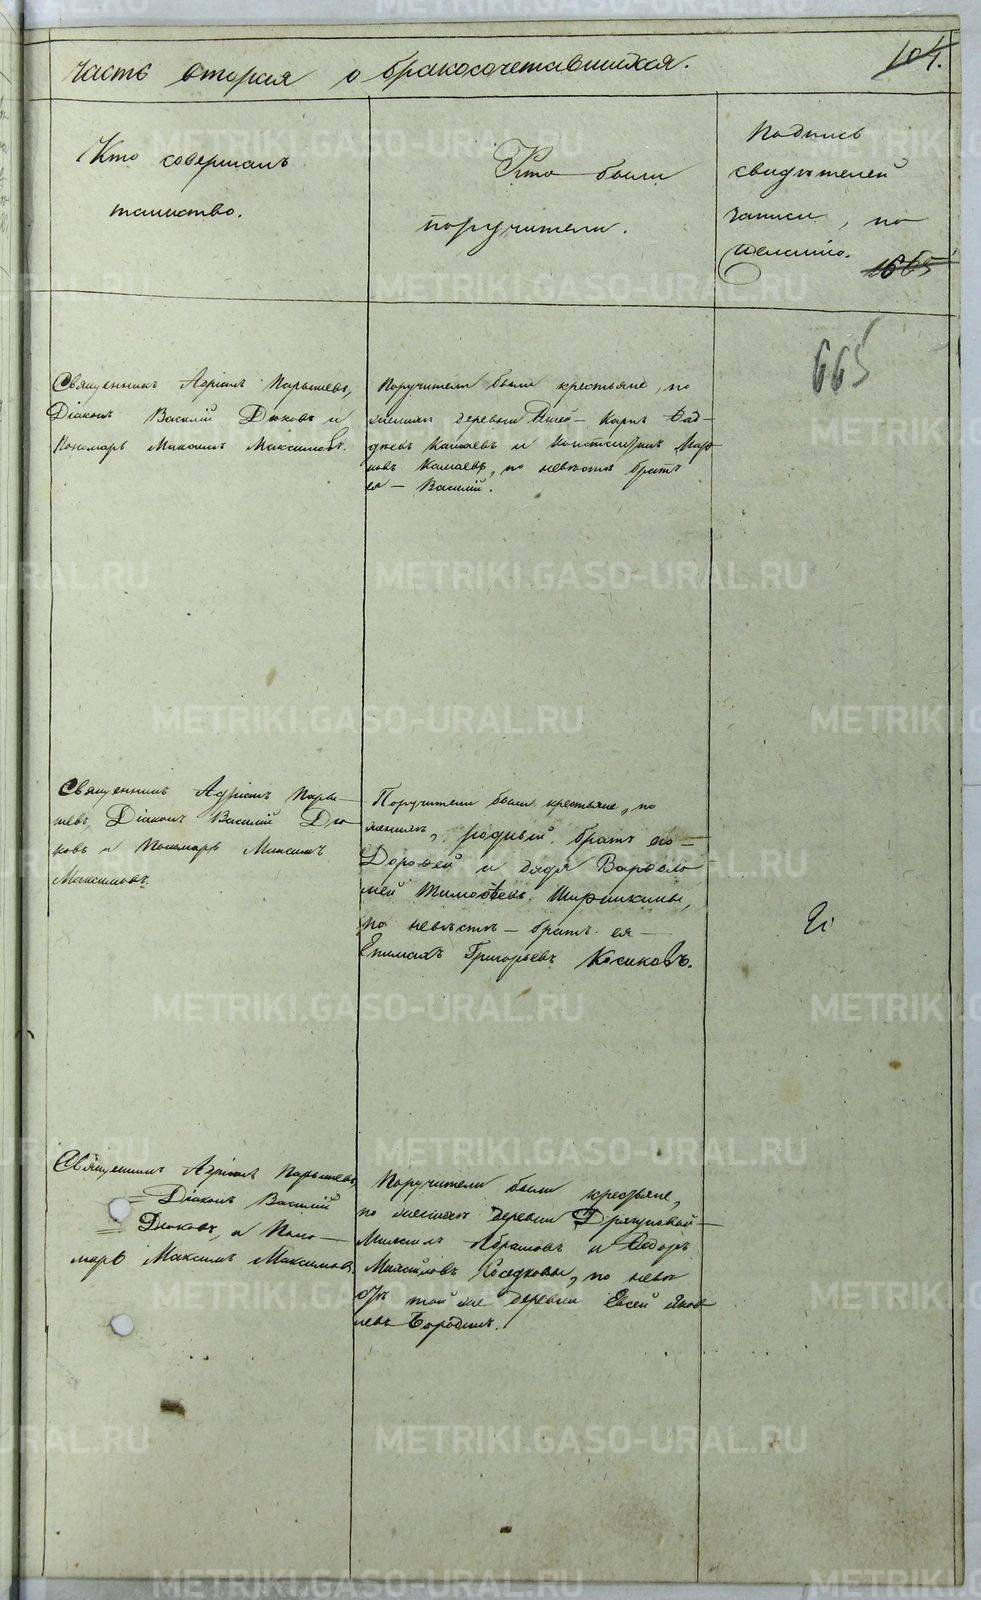 Часть вторая о бракосочетавшихся.
104.
Кто совершалъ
таинство.
Кто были
поручители.
Подпись
свидѣтелей
записи, по
желанію.
665
Священникъ Адріанъ Парышевъ,
Діаконъ Василій Дюковъ и
Пономарь Максимъ Максимовъ.
Поручители были крестьяне, по
женихѣ деревни
Камаевъ и Константинъ
Камаевъ, по невѣстѣ братъ
ея — Василій.
Священникъ Адріанъ Пары-
шевъ, Діаконъ Василій Дю-
ковъ и Пономарь Максимъ
Максимовъ.
Поручители были крестьяне, по
женихѣ, родный братъ его —
Дорофей и дядя Варфоло-
мей Тимофеевъ Ширинкины,
по невѣстѣ — братъ ея —
Епимахъ Григорьевъ Косиковъ.
Священникъ Адріанъ Парышевъ,
Діаконъ Василій
Дюковъ, и Поно-
марь Максимъ Максимовъ.
Поручители были крестьяне,
по женихѣ деревни
Абрамовъ и Ѳедоръ
Михайловъ по невѣ-
стѣ той же деревни Евсей Яков-
левъ Бородинъ.
METRIKI.GASO-URAL.RU